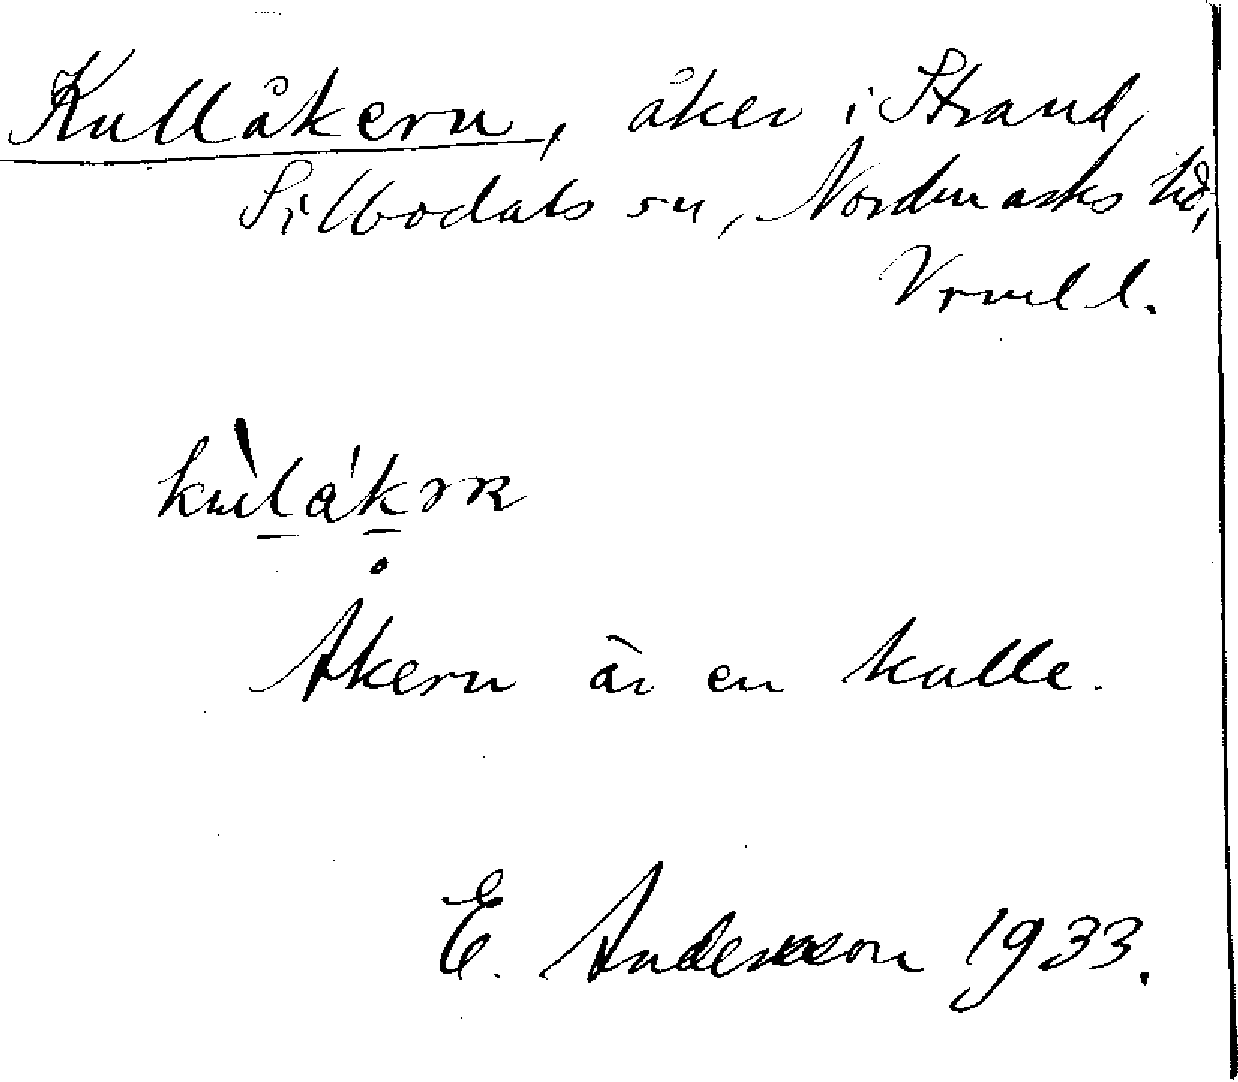 Kullåkern, åker i Strand,
Silbodals sn, Nordmarks hd,
Vrmll.
Åkern är en kulle.
E. Andersson 1933.